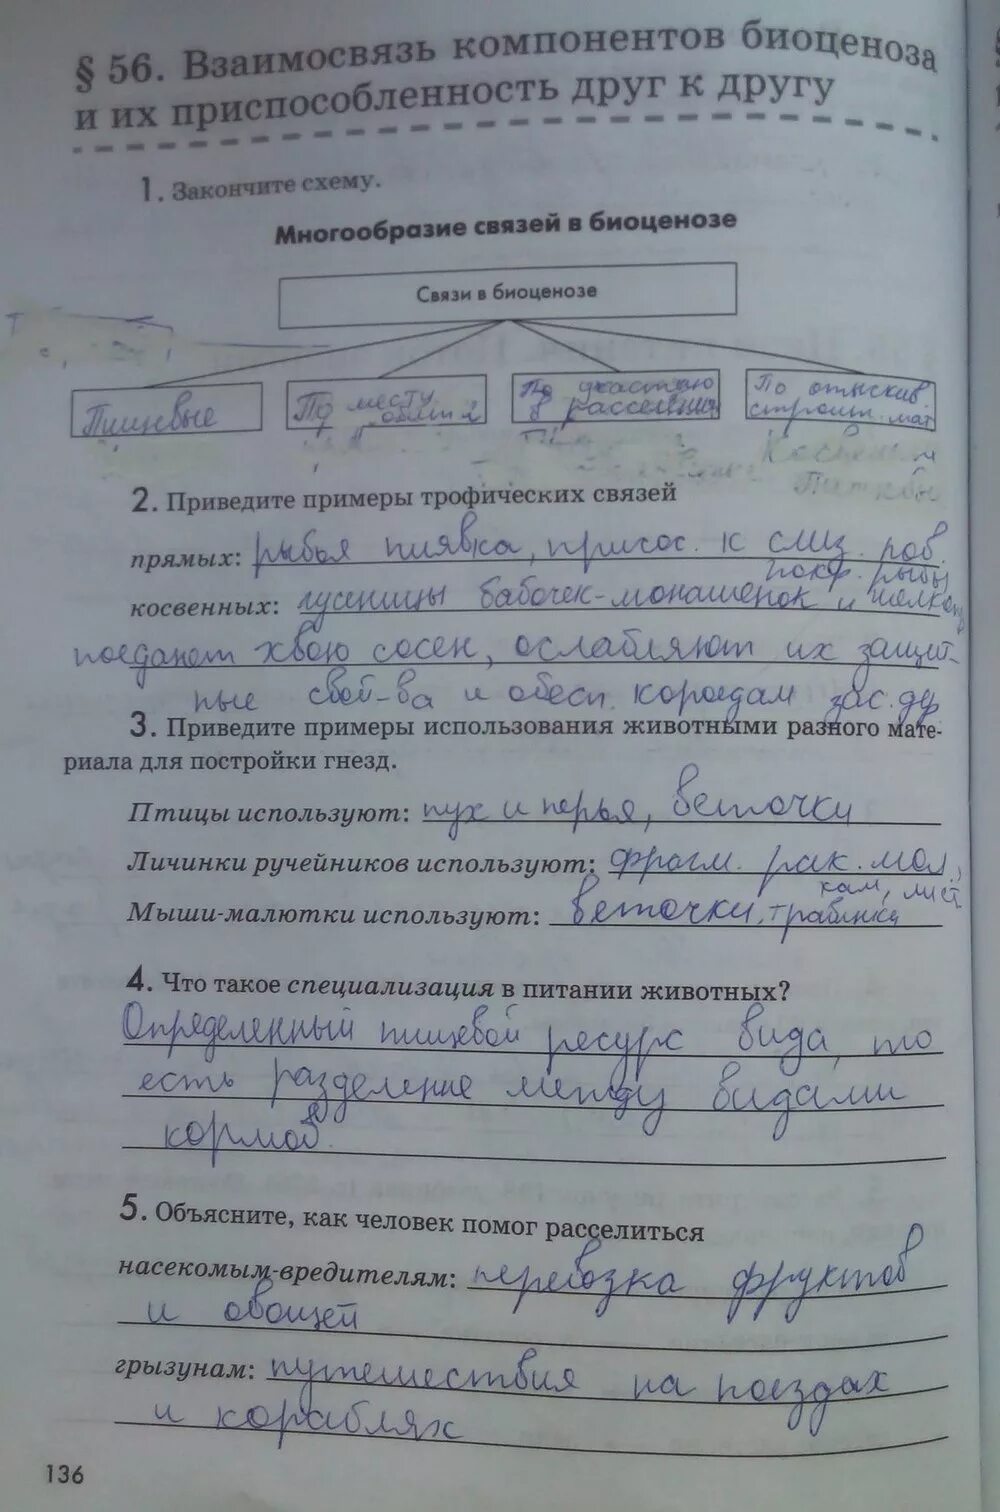 § 56. Взаимосвязь компонентов биоценоза
и их приспособленность друг к другу
1. Закончите схему.
Многообразие связей в биоценозе
Связи в биоценозе
Пищевые
По месту обитания
По участию в расселении
По отыскив. строит. мат
Косвенн
2. Приведите примеры трофических связей
прямых: рыбья пиявка, присос. к слиз. пов.
покр. рыбы
косвенных: гусеницы бабочек-монашенок и шелкопр
поедают хвою сосен, ослабляют их защит-
ные свой-ва и обесп. короедам зас. дер
3. Приведите примеры использования животными разного мате-
риала для постройки гнезд.
Птицы используют: пух и перья, веточки
Личинки ручейников используют: фрагм. рак. мол.,
кам, лист
Мыши-малютки используют: веточки, травинки
4. Что такое специализация в питании животных?
Определенный пищевой ресурс вида, то
есть разделение между видами
кормов
5. Объясните, как человек помог расселиться
насекомым-вредителям: перевозка фруктов
и овощей
грызунам: путешествия на поездах
и кораблях
136